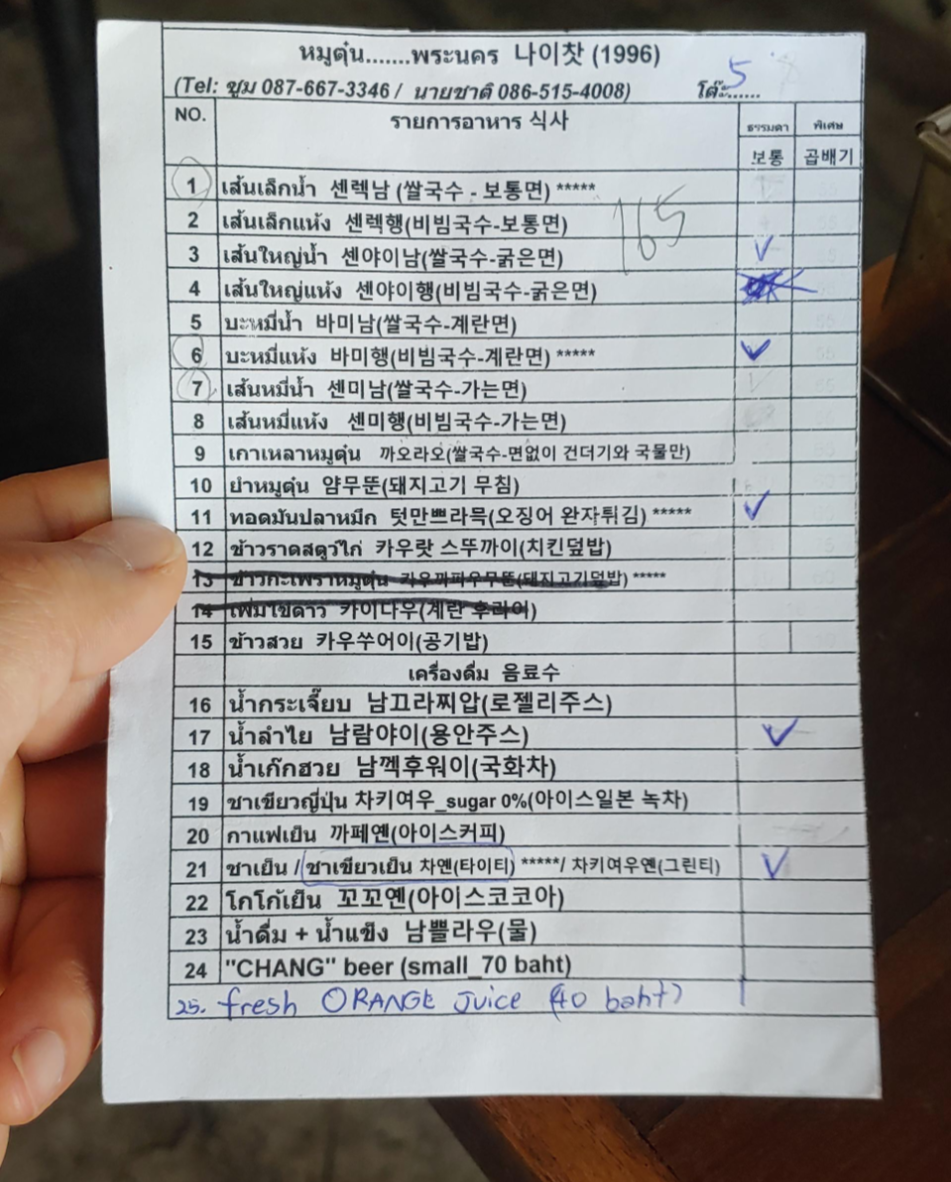 หมูตุ๋น.......พระนคร 나이찻 (1996)
(Tel: ชูม 087-667-3346 / นายชาติ 086-515-4008) โต๊ะ...... 5
NO. รายการอาหาร 식사 ธรรมดา พิเศษ
보통 곱배기
1 เส้นเล็กน้ำ 센렉남 (쌀국수 - 보통면) *****
2 เส้นเล็กแห้ง 센렉행(비빔국수-보통면)
165
3 เส้นใหญ่น้ำ 센야이남(쌀국수-굵은면) ✓
4 เส้นใหญ่แห้ง 센야이행(비빔국수-굵은면)
5 บะหมี่น้ำ 바미남(쌀국수-계란면)
6 บะหมี่แห้ง 바미행(비빔국수-계란면) ***** ✓
7 เส้นหมี่น้ำ 센미남(쌀국수-가는면)
8 เส้นหมี่แห้ง 센미행(비빔국수-가는면)
9 เกาเหลาหมูตุ๋น 까오라오(쌀국수-면없이 건더기와 국물만)
10 ยำหมูตุ๋น 얌무뚠(돼지고기 무침)
11 ทอดมันปลาหมึก 텃만쁘라믁(오징어 완자튀김) ***** ✓
12 ข้าวราดสตูว์ไก่ 카우랏 스뚜까이(치킨덮밥)
13 ข้าวกะเพราหมูตุ๋น 카우까파우무뚠(돼지고기덮밥) *****
14 เพิ่มไข่ดาว 카이다우(계란 후라이)
15 ข้าวสวย 카우쑤어이(공기밥)
เครื่องดื่ม 음료수
16 น้ำกระเจี๊ยบ 남끄라찌압(로젤리주스)
17 น้ำลำไย 남람야이(용안주스) ✓
18 น้ำเก๊กฮวย 남껵후워이(국화차)
19 ชาเขียวญี่ปุ่น 차키여우_sugar 0%(아이스일본 녹차)
20 กาแฟเย็น 까페옌(아이스커피)
21 ชาเย็น / ชาเขียวเย็น 차옌(타이티) *****/ 차키여우옌(그린티) ✓
22 โกโก้เย็น 꼬꼬옌(아이스코코아)
23 น้ำดื่ม + น้ำแข็ง 남쁠라우(물)
24 "CHANG" beer (small_70 baht)
25. fresh ORANGE Juice (40 baht)